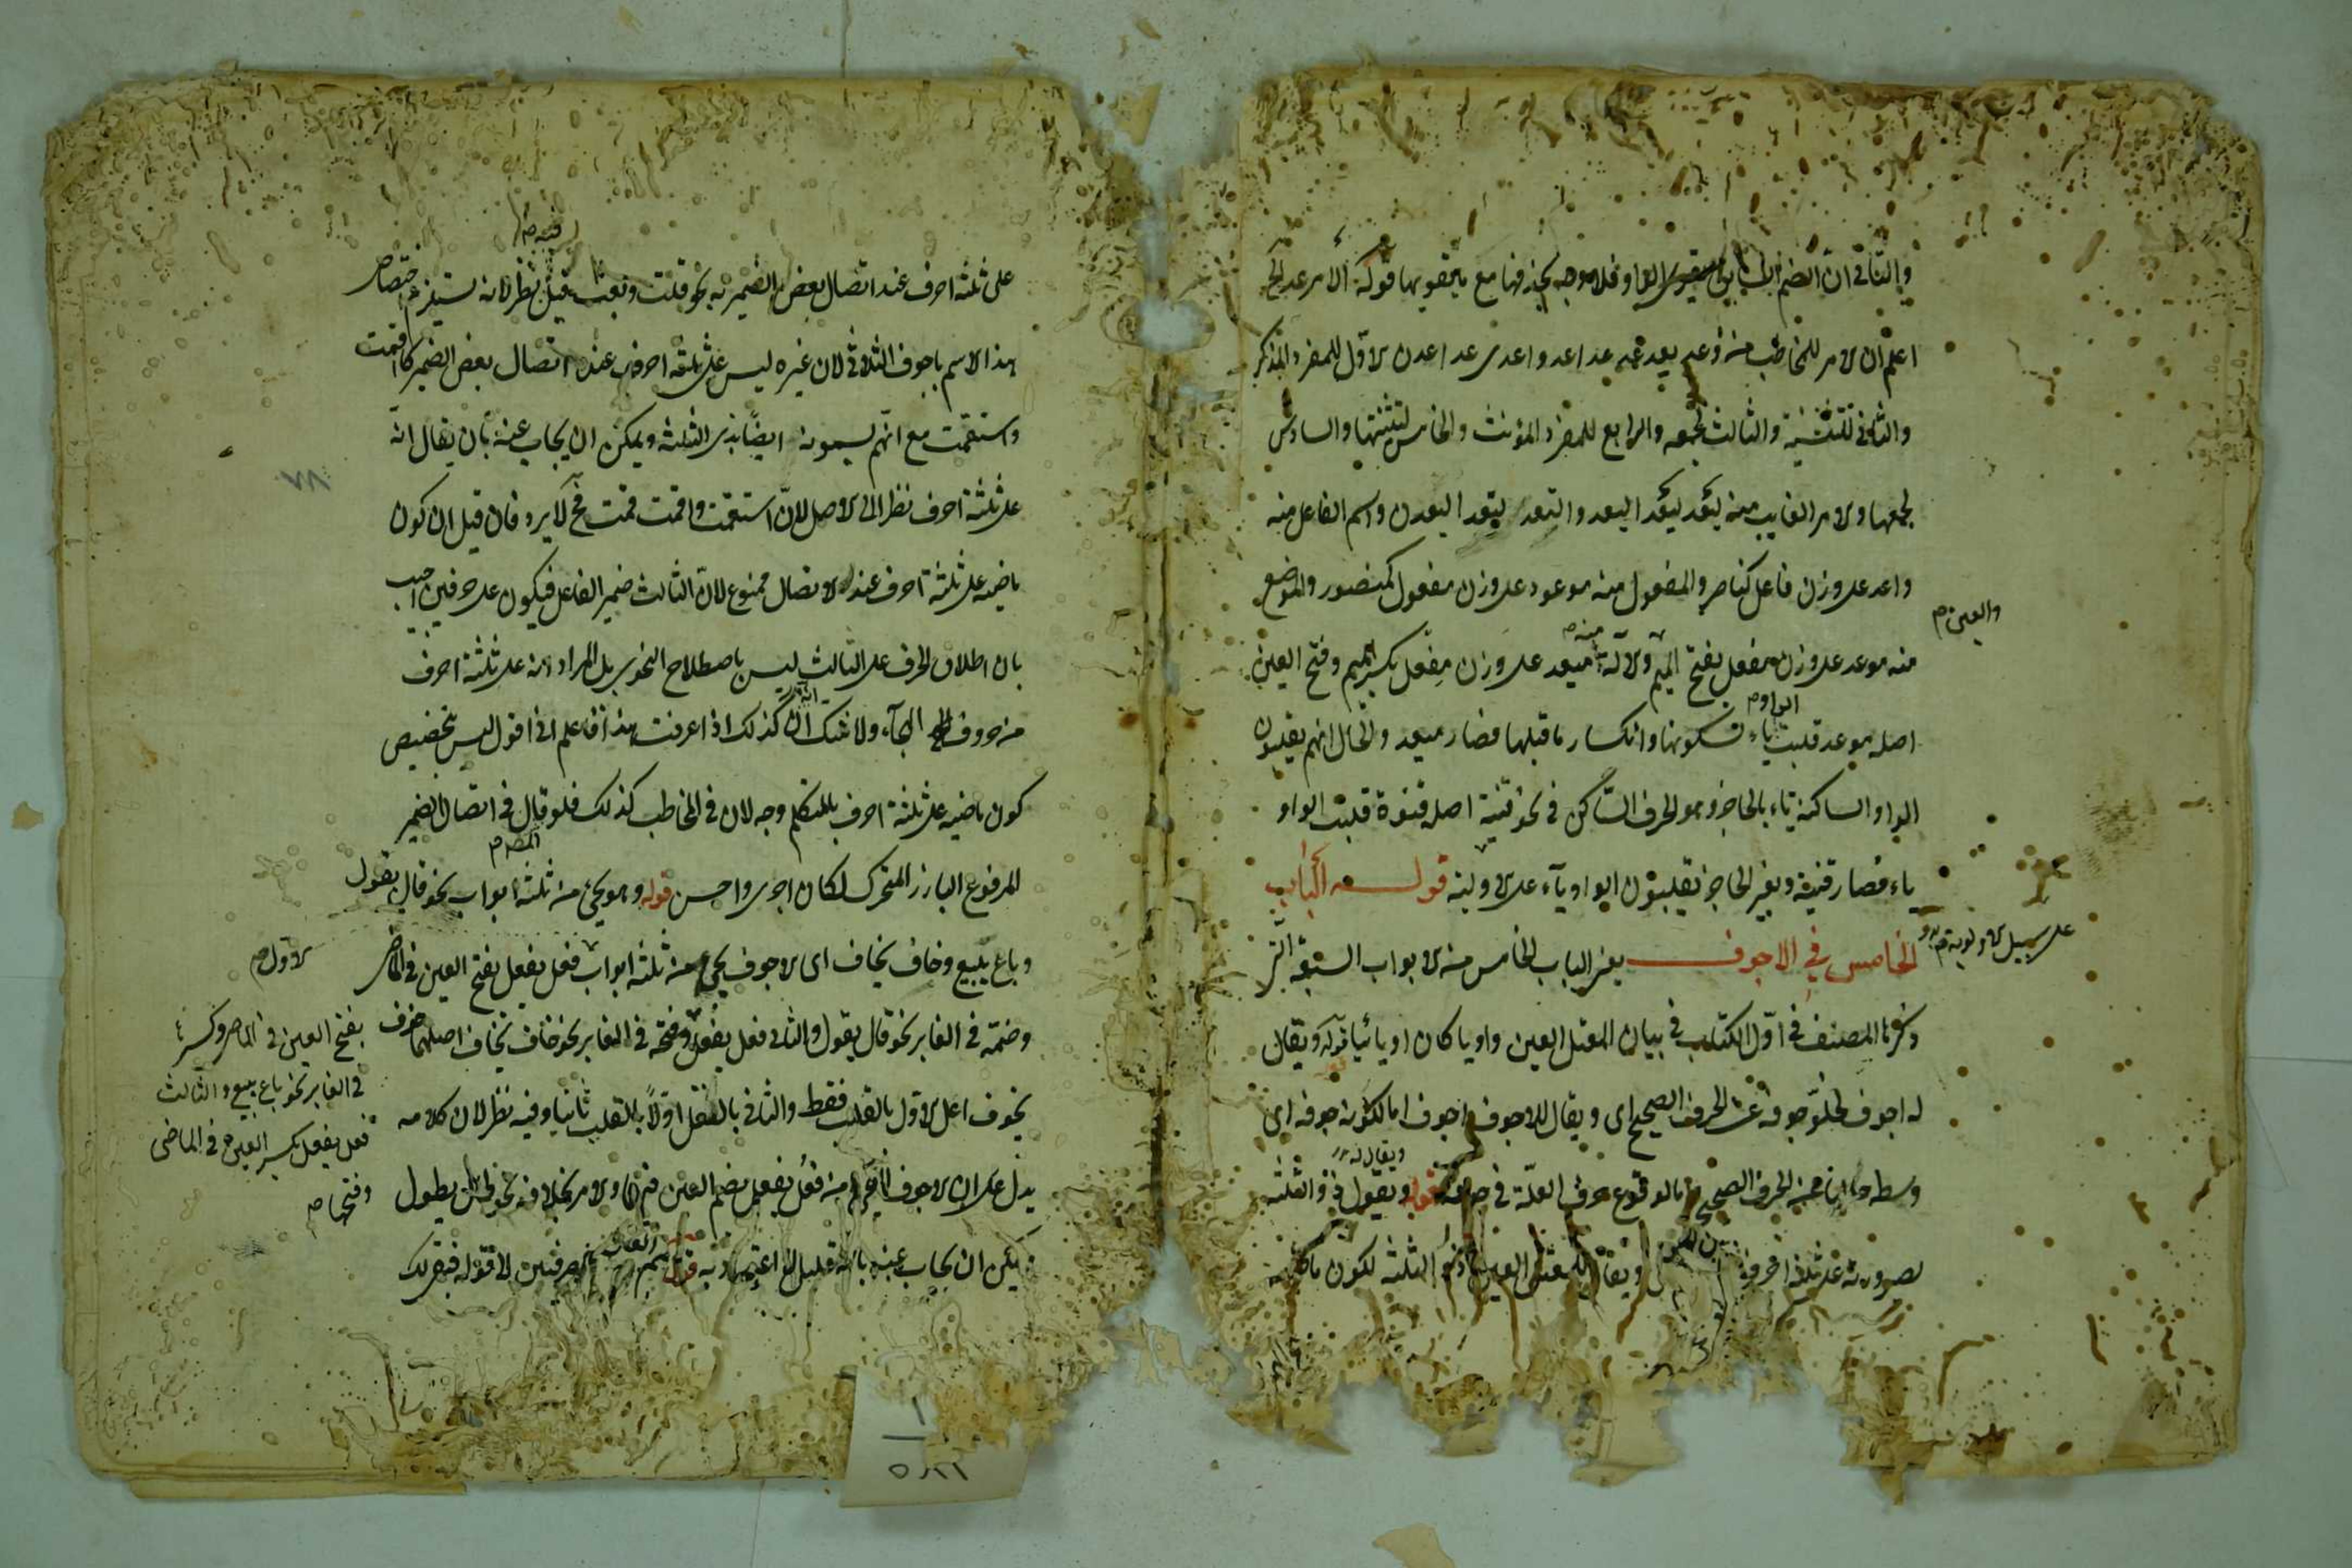 وبالتالي ان الضم الواو فلا موجب لحذفها مع ما يقويها قوله الامر عد الخ
اعلم ان الامر للمخاطب منه عد عدا عدوا عدى عدا عدن الاول للمفرد المذكر
والثاني لتثنيته والثالث لجمعه والرابع للمفرد المؤنث والخامس لتثنيتها والسادس
لجمعها والامر الغايب منه ليعد ليعدا ليعدوا لتعد لتعدا ليعدن واسم الفاعل منه
واعد على وزن فاعل كناصر والمفعول منه موعود على وزن مفعول كمنصور والموضع
والعين م
منه موعد على وزن مفعل بفتح الميم والآلة منه ميعد على وزن مفعل بكسر الميم وفتح العين
اصله موعد قلبت الواو ياء لسكونها وانكسار ما قبلها فصار ميعد والحال انهم يقلبون
الواو الساكنة ياء بالحاجز وهو الحرف الساكن في نحو قنية اصله قنوة قلبت الواو
ياء فصار قنية وبغير الحاجز يقلبون الواو ياء على الاولية قوله الباب
على سبيل الاولوية م
الخامس في الاجوف يعنى الباب الخامس من الابواب السبعة التى
ذكرها المصنف في اول الكتاب في بيان المعتل العين واويا كان او يائيا قوله ويقال
له اجوف لخلو جوفه عن الحرف الصحيح اى ويقال للاجوف اجوف اما لكونه جوفه اى
وسطه خاليا من الحرف الصحيح او لوقوع حرف العلة في جوفه قوله ويقال له ذو الثلثة
لصيرورته على ثلثة احرف ويقال للمعتل العين ذو الثلثة لكون ماضيه
على ثلثة احرف عند اتصال بعض الضمير به نحو قلت وبعت قيل فيه نظر لانه يستلزم اختصاص
هذا الاسم باجوف الثلاثي لان غيره ليس على ثلثة احرف عند اتصال بعض الضمير كاقمت
واستقمت مع انهم يسمونه ايضا بذى الثلثة ويمكن ان يجاب عنه بان يقال انه
على ثلثة احرف نظرا الى الاصل لان استقمت واقمت قمت فح لا يرد فان قيل ان كون
ماضيه على ثلثة احرف عند الاتصال ممنوع لان الثالث ضمير الفاعل فيكون على حرفين اجيب
بان اطلاق الحرف على الثالث ليس باصطلاح النحوى بل المراد انه على ثلثة احرف
من حروف الهجاء ولا شك انه كذلك اذا عرفت هذا فاعلم انى اقول ليس تخصيص
كون ماضيه على ثلثة احرف بالمتكلم وجه لان في المخاطب كذلك فلو قال في اتصال الضمير
المرفوع البارز المتحرك لكان اجرى واحسن قوله وهو يجئ من ثلثة ابواب نحو قال يقول
وباع يبيع وخاف يخاف اى الاجوف يجئ من ثلثة ابواب الاول م فعل يفعل بفتح العين في الماضى
وضمه في الغابر نحو قال يقول والثانى فعل يفعل وفتحه في الغابر نحو خاف يخاف اصلهما خوف
بفتح العين في الماضى وكسر
في الغابر نحو باع يبيع والثالث
فعل يفعل بكسر العين في الماضى
وفتحها م
يخوف اعل الاول بالقلب فقط والثانى بالنقل اولا بالقلب ثانيا وفيه نظر لان كلامه
يدل على ان الاجوف لم يجئ منه فعل يفعل بضم العين في الماضى والامر بخلافه نحو طال يطول
ويمكن ان يجاب عنه بانه قليل لا اعتبار به قوله